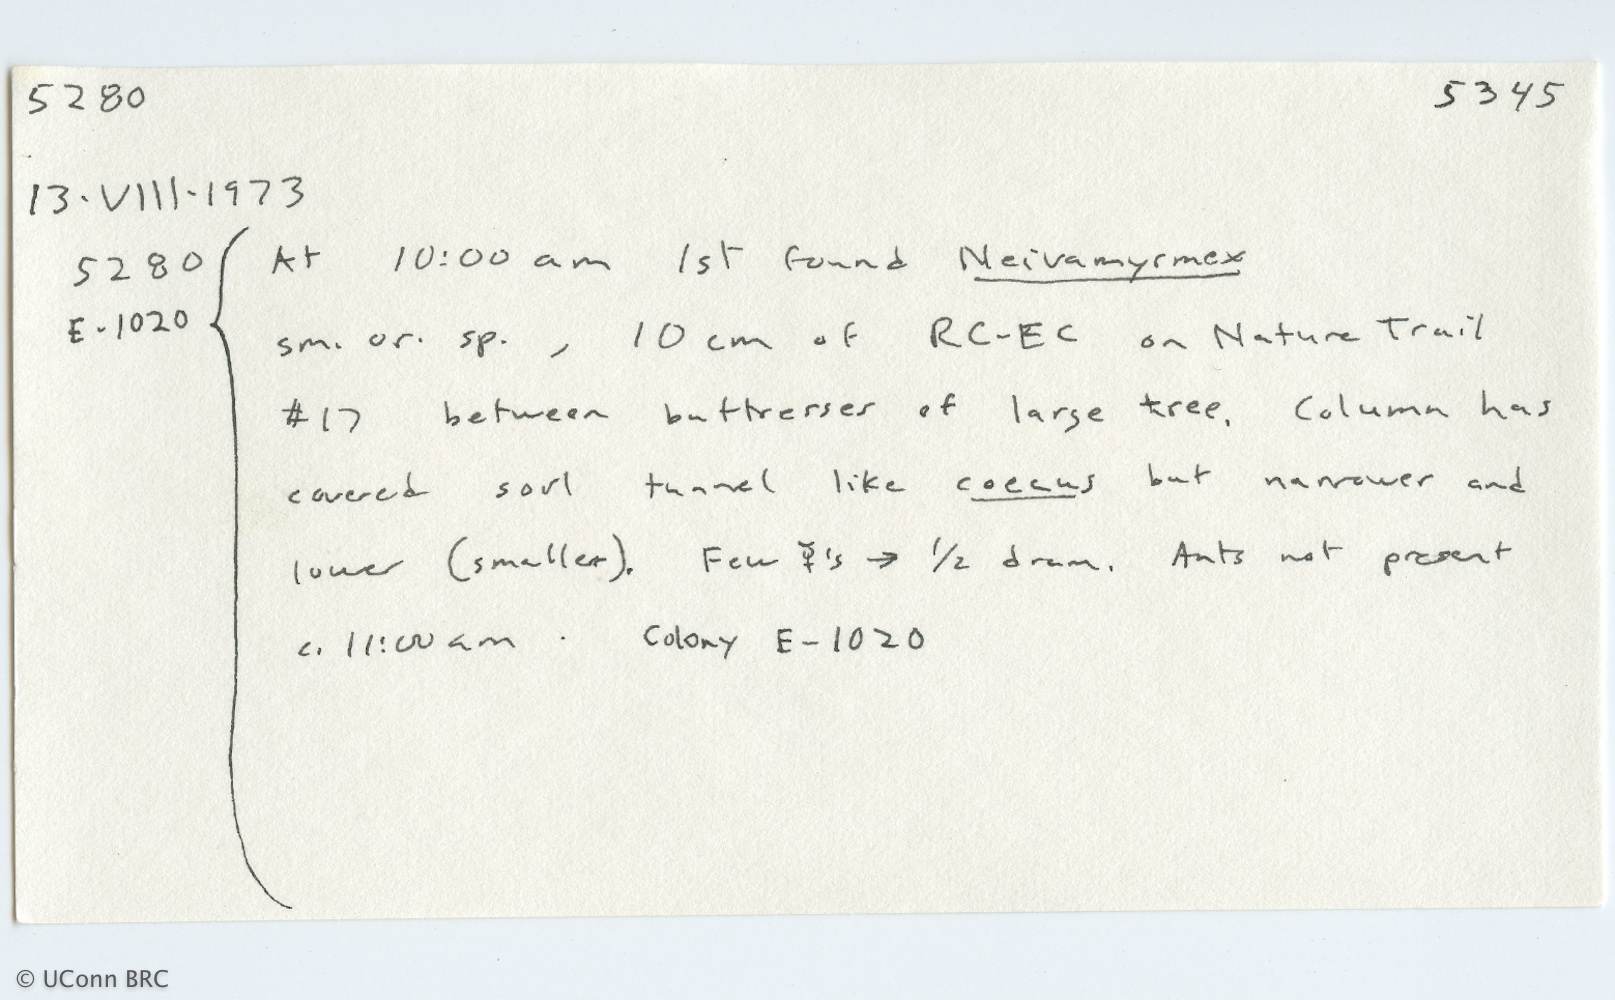 5280 5345
13·VIII·1973
5280 At 10:00 am 1st found Neivamyrmex
E-1020 sm. or. sp., 10 cm of RC-EC on Nature Trail
#17 between buttresses of large tree. Column has
covered soil tunnel like coecus but narrower and
lower (smaller). Few ☿'s → 1/2 dram. Ants not present
c. 11:00 am . Colony E-1020
© UConn BRC